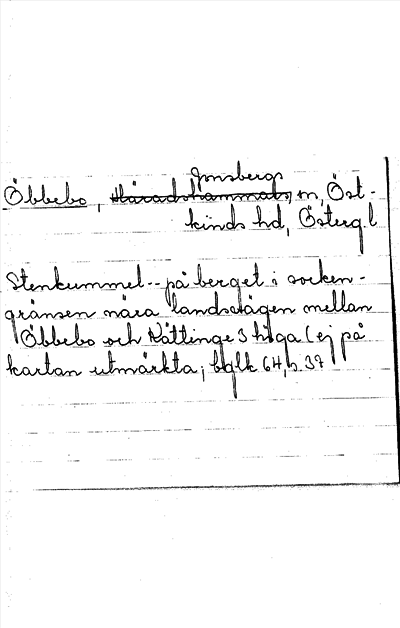 Jonsbergs
Öbbebo, Häradshammars, sn, Öst-
kinds hd, Österg. l
Stenkummel -- på berget i socken-
gränsen nära landsvägen mellan
Öbbebo och Kättinge 3 höga (ej på
kartan utmärkta; bglk 64, s. 37